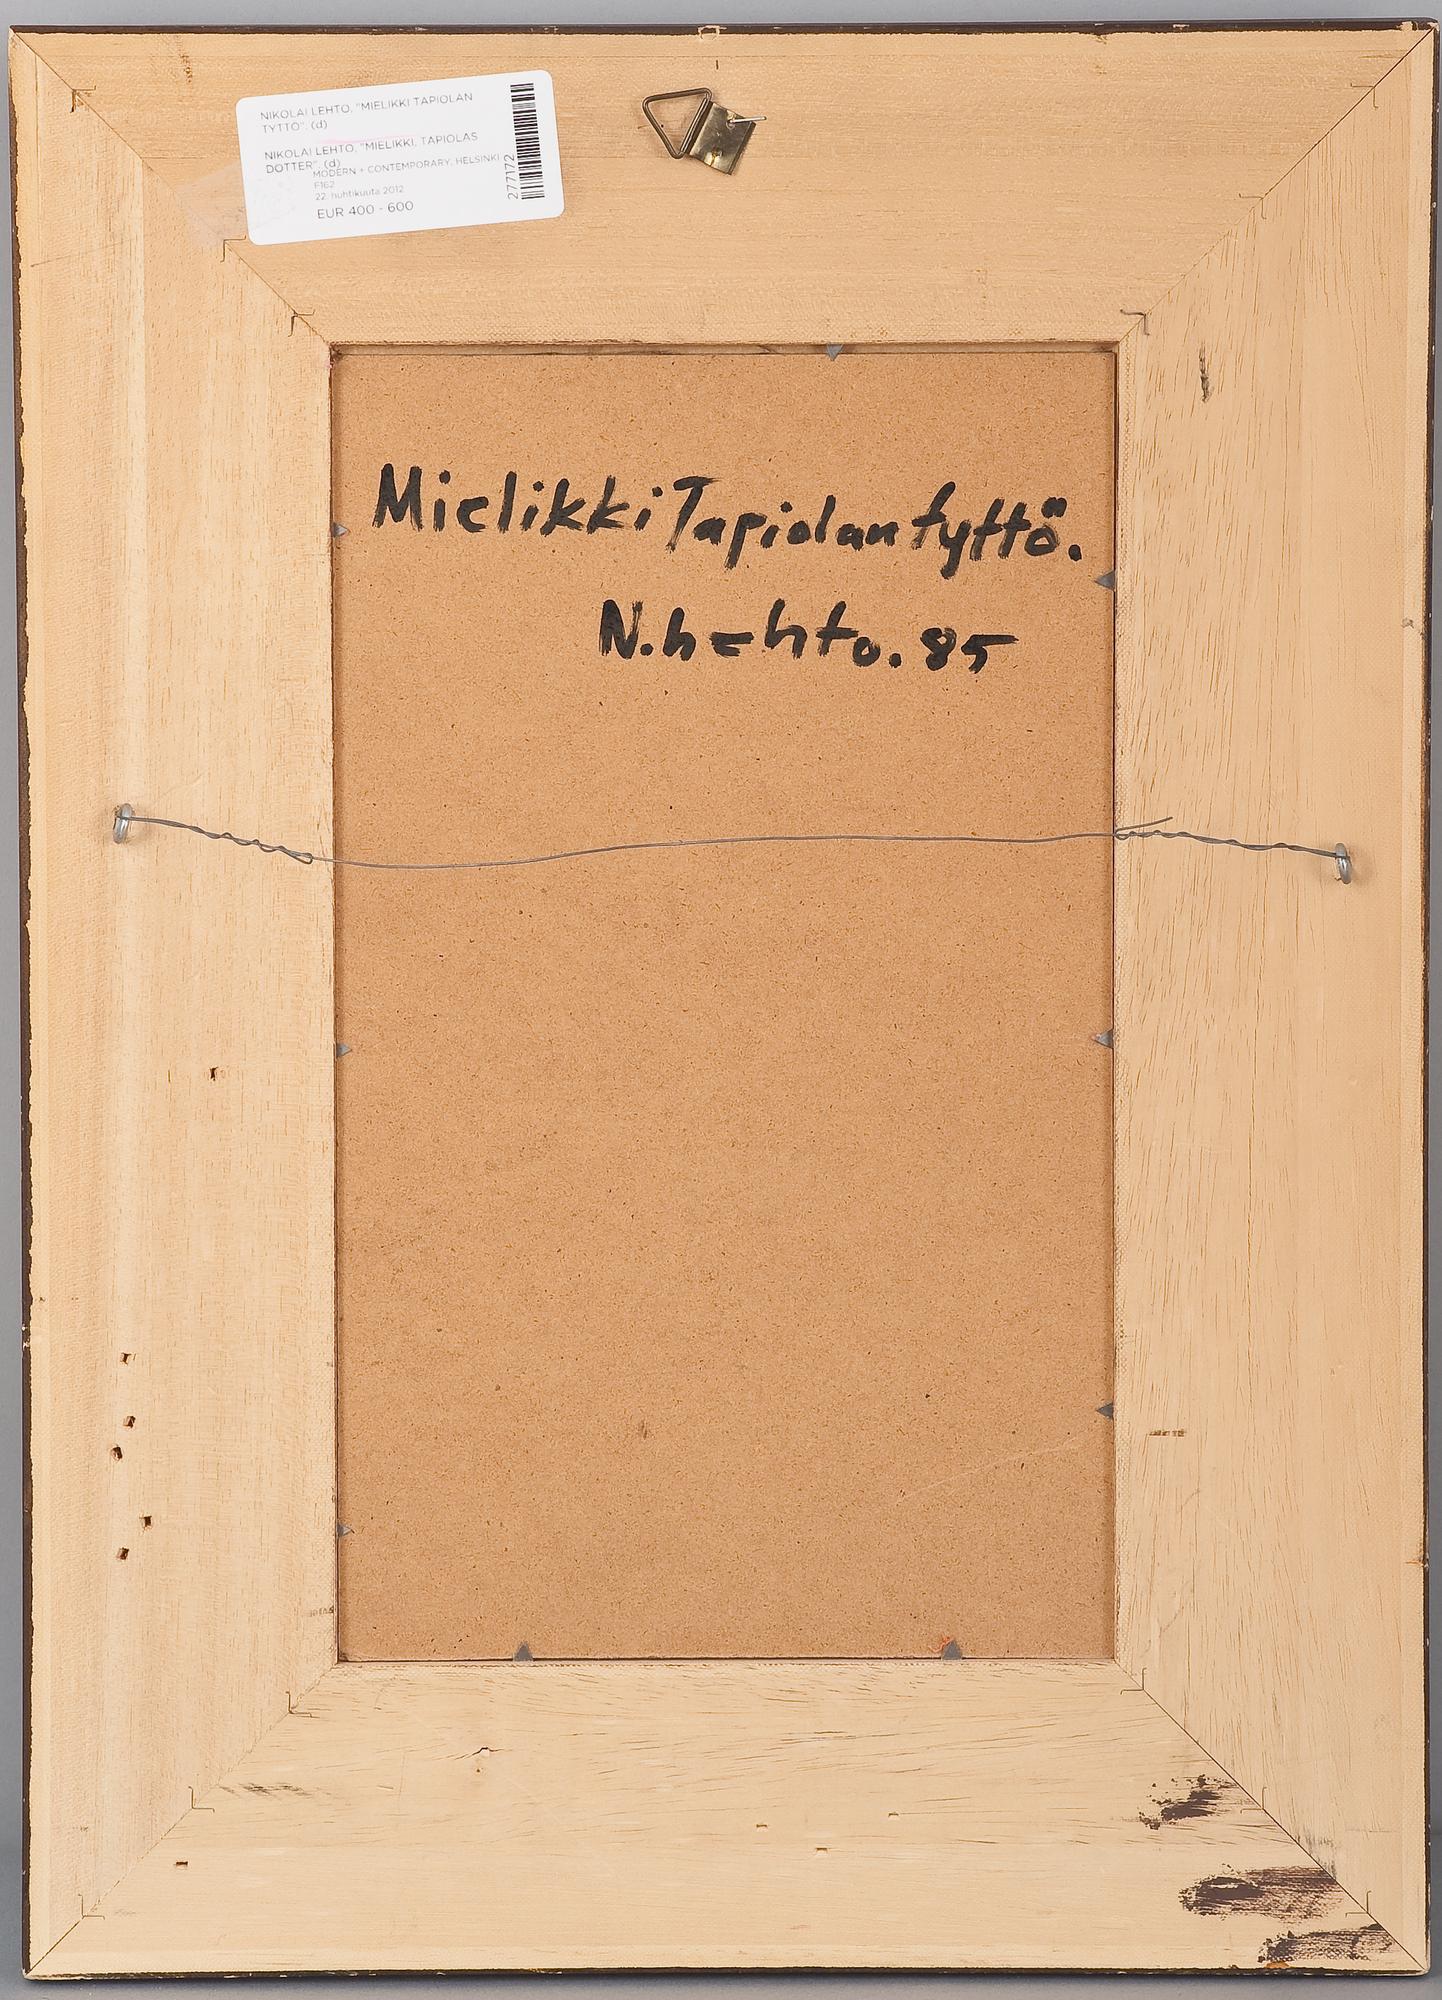 NIKOLAI LEHTO, "MIELIKKI TAPIOLAN
TYTTÖ". (d)
NIKOLAI LEHTO, "MIELIKKI, TAPIOLAS
DOTTER". (d)
MODERN + CONTEMPORARY, HELSINKI
F162
22. huhtikuuta 2012
EUR 400 - 600
277172
Mielikki Tapiolan tyttö.
N. Lehto. 85